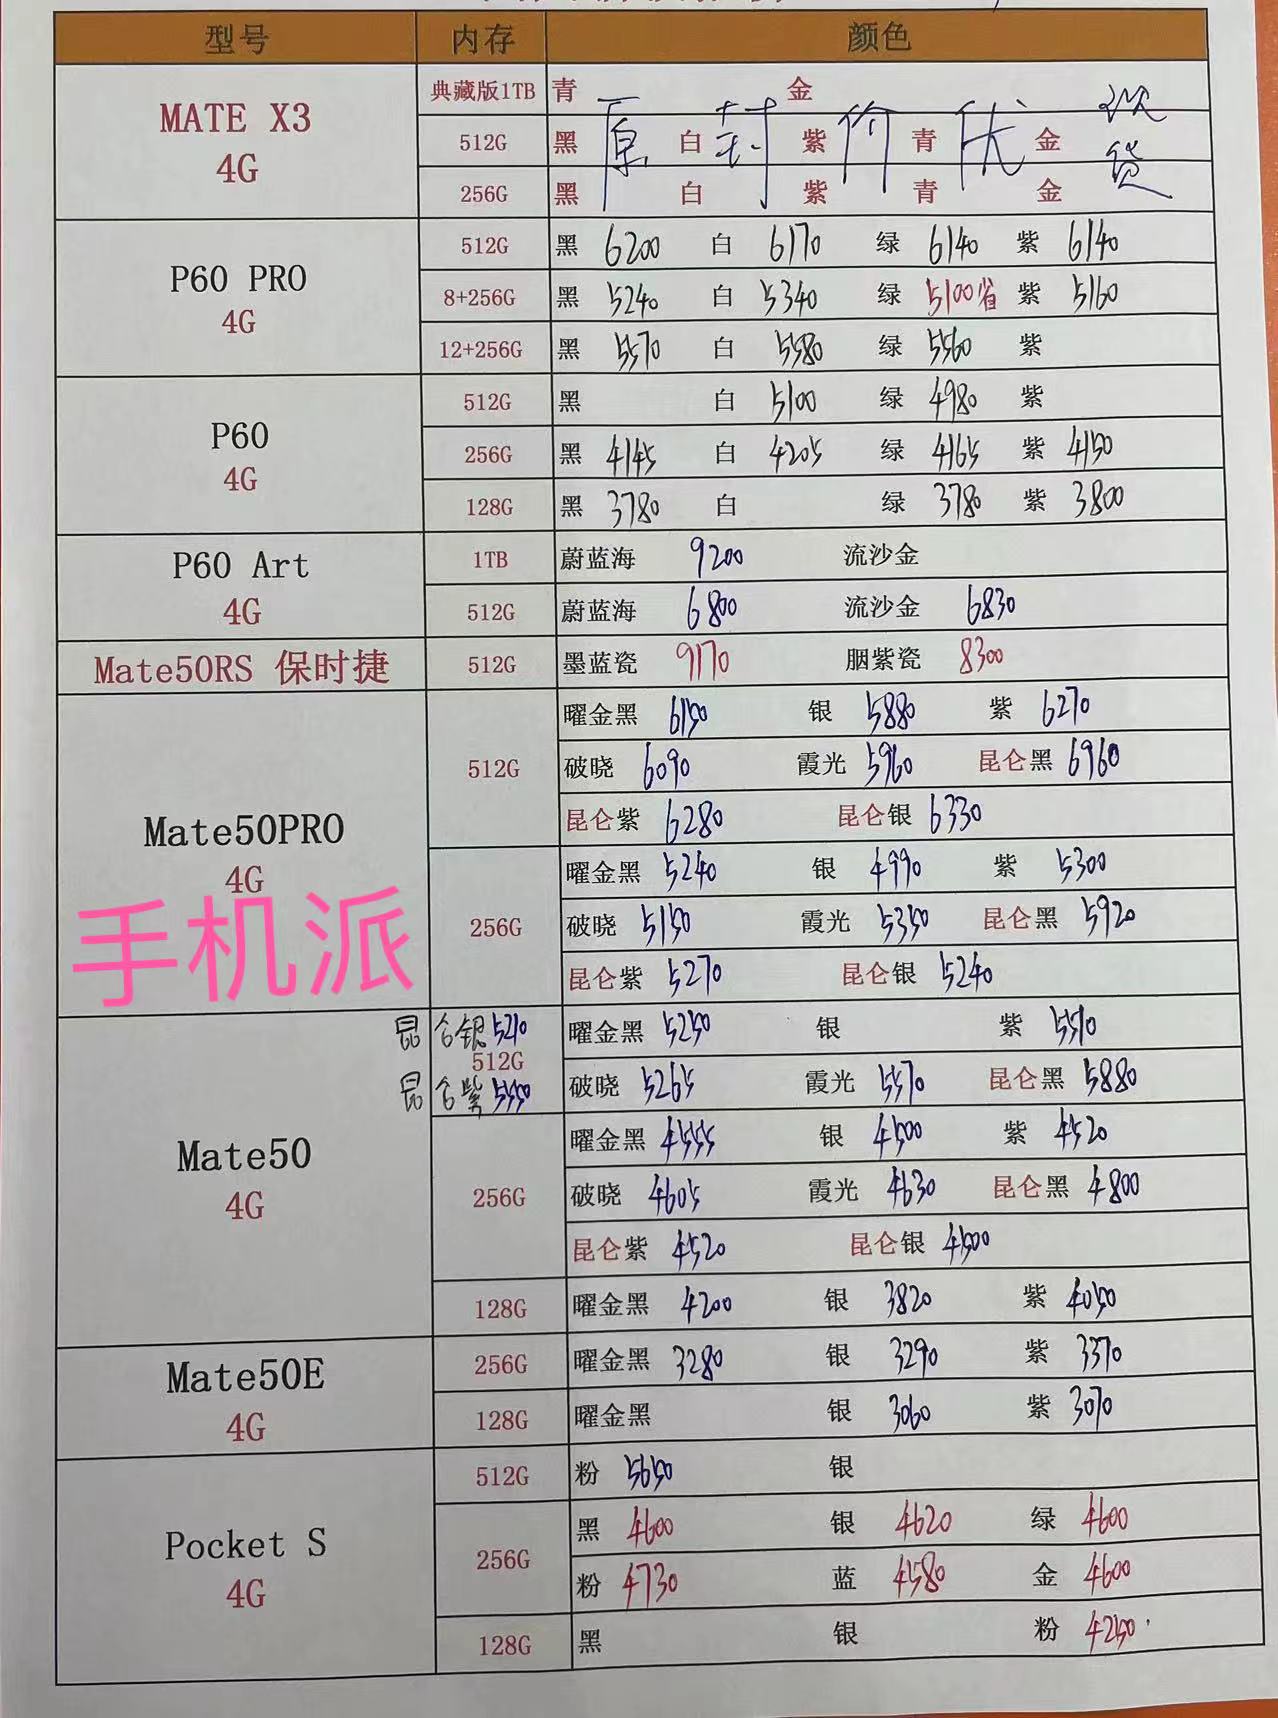 型号 内存 颜色
MATE X3 4G
典藏版1TB 青 金
512G 黑 白 紫 青 金
256G 黑 白 紫 青 金
原封价优 欢货
P60 PRO 4G
512G 黑 6200 白 6170 绿 6140 紫 6140
8+256G 黑 5240 白 5340 绿 5100省 紫 5160
12+256G 黑 5570 白 5580 绿 5560 紫
P60 4G
512G 黑 白 5100 绿 4980 紫
256G 黑 4145 白 4205 绿 4165 紫 4150
128G 黑 3780 白 绿 3780 紫 3800
P60 Art 4G
1TB 蔚蓝海 9200 流沙金
512G 蔚蓝海 6800 流沙金 6830
Mate50RS 保时捷 512G 墨蓝瓷 9170 胭紫瓷 8300
Mate50PRO 4G
512G 曜金黑 6150 银 5880 紫 6270
破晓 6090 霞光 5960 昆仑黑 6960
昆仑紫 6280 昆仑银 6330
256G 曜金黑 5240 银 4990 紫 5300
破晓 5150 霞光 5350 昆仑黑 5920
昆仑紫 5270 昆仑银 5240
手机派
Mate50 4G
昆仑银 5210
512G 曜金黑 5250 银 紫 5510
昆仑紫 5550
破晓 5265 霞光 5570 昆仑黑 5880
256G 曜金黑 4555 银 4500 紫 4520
破晓 4605 霞光 4630 昆仑黑 4800
昆仑紫 4520 昆仑银 4500
128G 曜金黑 4200 银 3820 紫 4050
Mate50E 4G
256G 曜金黑 3280 银 3290 紫 3370
128G 曜金黑 银 3060 紫 3070
Pocket S 4G
512G 粉 5650 银
256G 黑 4600 银 4620 绿 4600
粉 4730 蓝 4580 金 4600
128G 黑 银 粉 4250